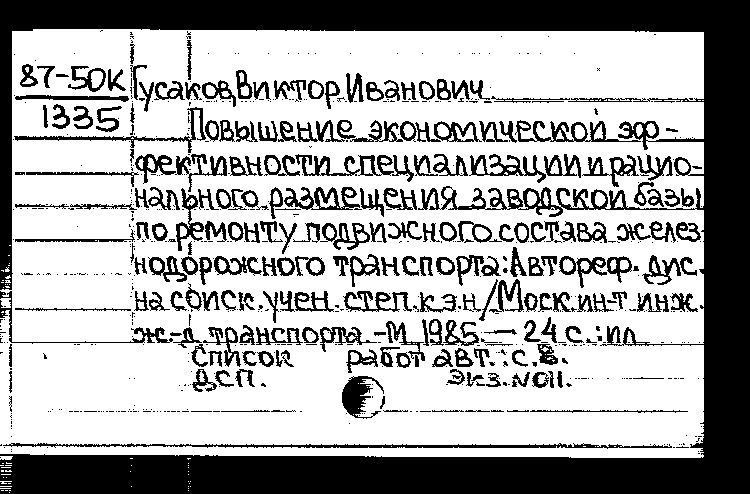 87-50К
1335
Гусаков, Виктор Иванович.
Повышение экономической эф-
фективности специализации и рацио-
нального размещения заводской базы
по ремонту подвижного состава желез-
нодорожного транспорта: Автореф. дис.
на соиск. учен. степ. к.э.н / Моск ин-т инж.
ж.-д. транспорта. -М, 1985. — 24 с.: ил
Список работ авт.: с.
ДСП. Экз. №011.